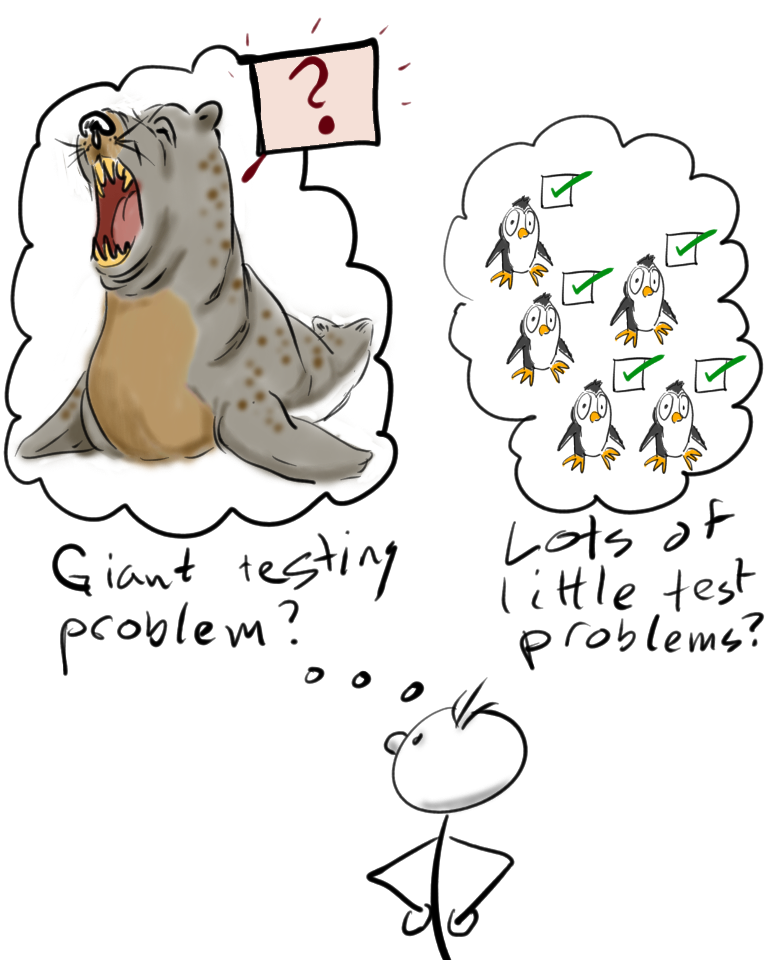 ?
Giant testing
problem?
Lots of
little test
problems?